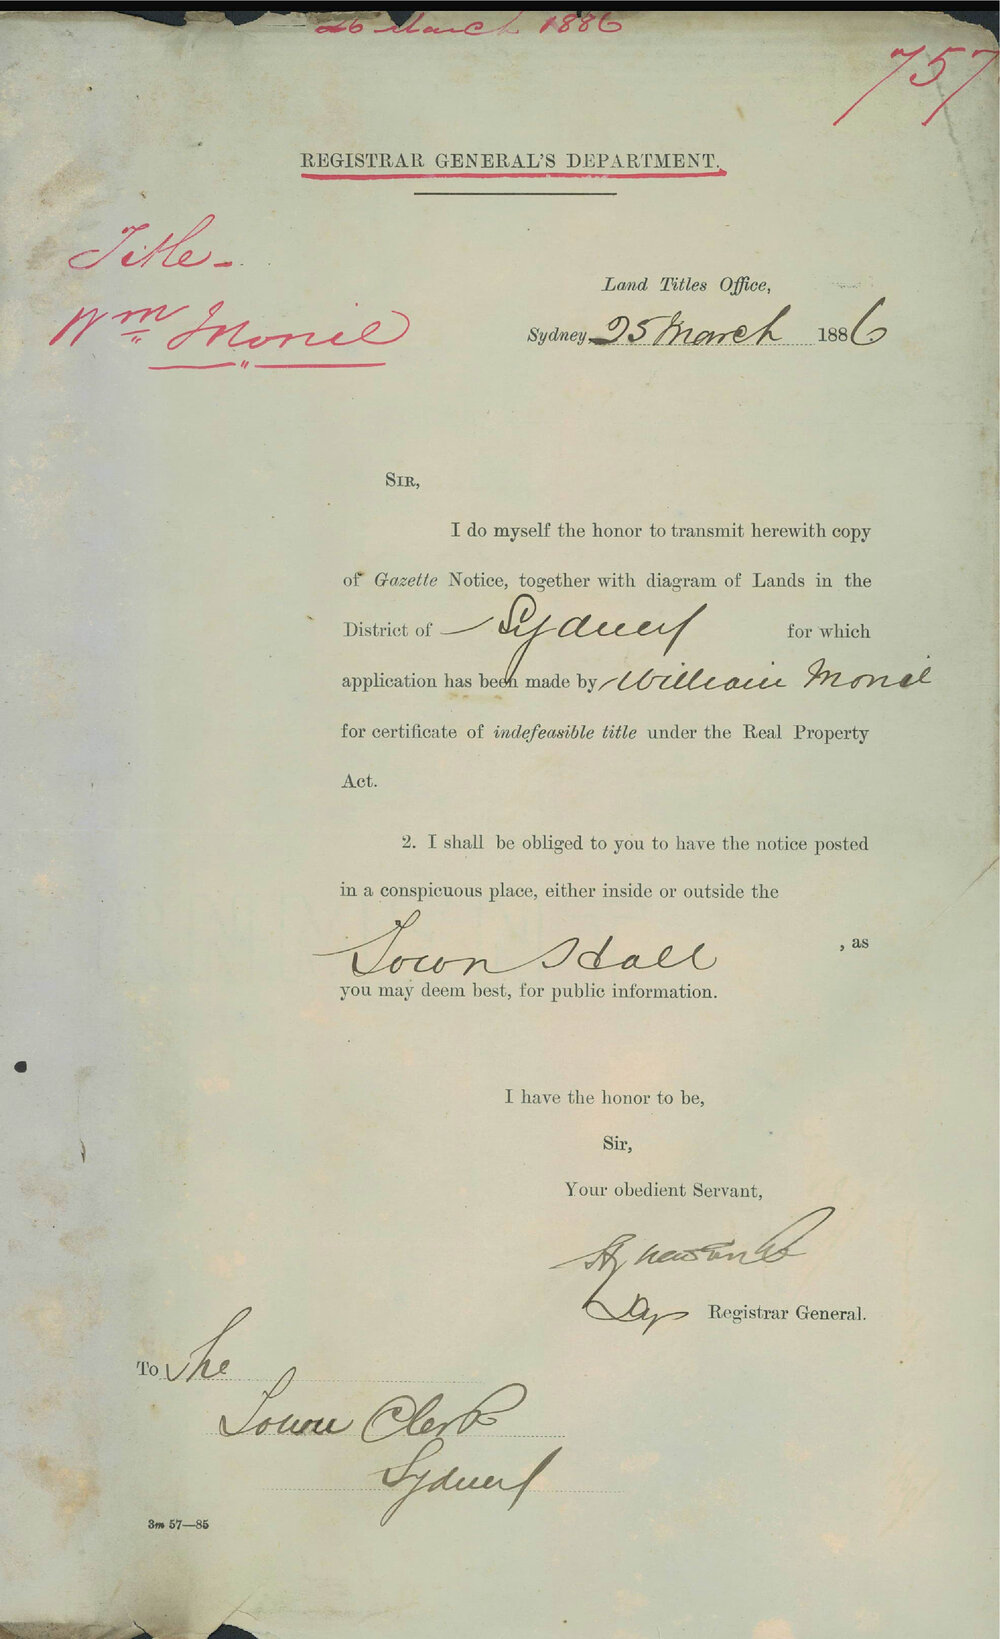 26 March 1886
757
REGISTRAR GENERAL'S DEPARTMENT.
Title-
Wm Monil
Land Titles Office,
Sydney 25 March 1886
SIR,
I do myself the honor to transmit herewith copy
of Gazette Notice, together with diagram of Lands in the
District of Sydney for which
application has been made by William Monil
for certificate of indefeasible title under the Real Property
Act.
2. I shall be obliged to you to have the notice posted
in a conspicuous place, either inside or outside the
Town Hall , as
you may deem best, for public information.
I have the honor to be,
Sir,
Your obedient Servant,
Dy Registrar General.
To The
Town Clerk
Sydney
3m 57—85